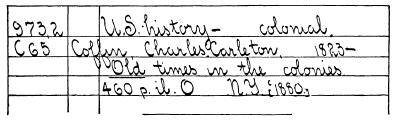 973.2 U.S. history— colonial.
C65 Coffin, Charles Carleton, 1823—
Old times in the colonies
460 p. il. O N.Y. [1880.